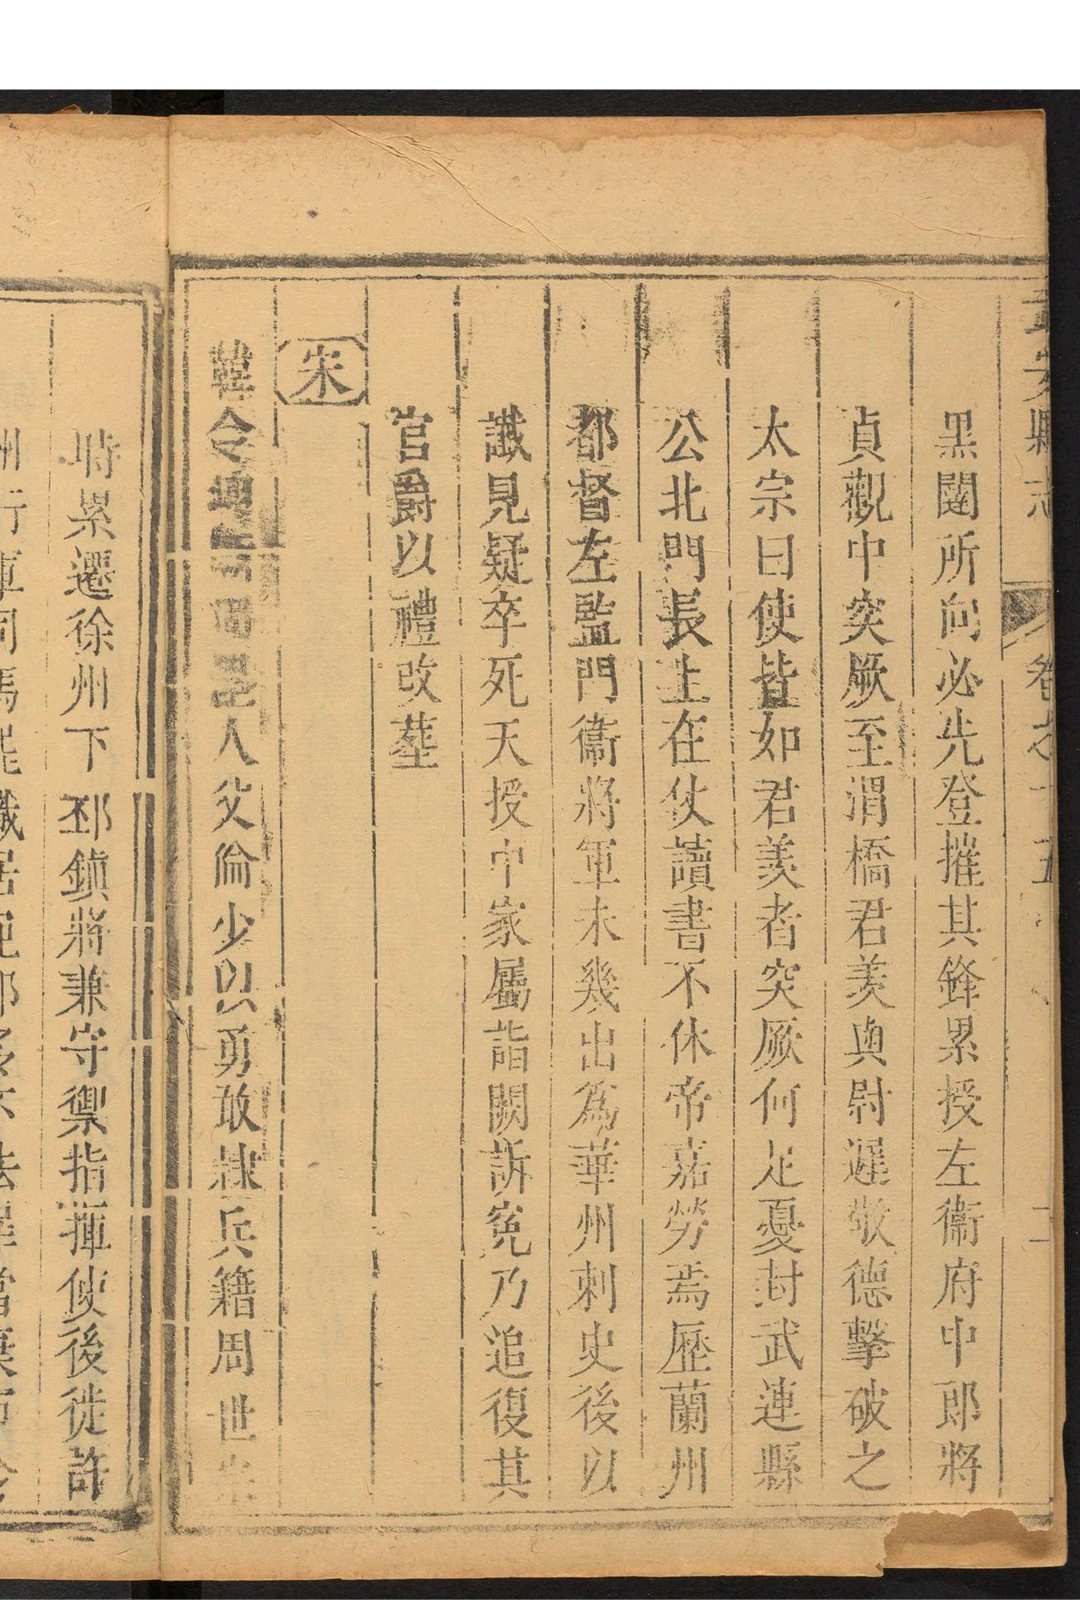 武安縣志 卷之十五
黑闥所向必先登摧其鋒累授左衞府中郎將
貞觀中突厥至渭橋君羨與尉遲敬德擊破之
太宗曰使皆如君羨者突厥何足憂封武連縣
公北門長上在仗讀書不休帝嘉勞焉歷蘭州
都督左監門衞將軍未幾出爲華州刺史後以
讖見疑卒死天授中家屬詣闕訴冤乃追復其
官爵以禮改葬
宋
韓令坤 人父倫少以勇敢隷兵籍周世
時累遷徐州下邳鎭將兼守禦指揮使後徙許
州行軍司馬罷職居宛郡多不法罪當棄市令